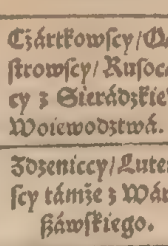 Czártkowſcy/
ſtrowſcy/ Ruſoc
cy z Sierádzkie
Woiewodztwá.
Zdzeniccy/ Lute
ſcy támże z Wár
ſzáwſkiego.